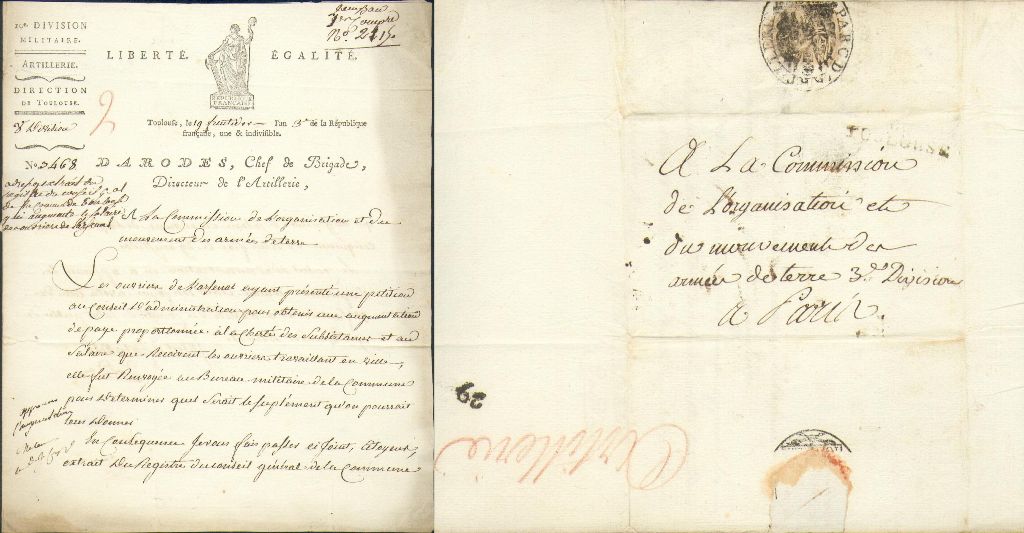 20e. DIVISION
MILITAIRE.
ARTILLERIE.
DIRECTION
DE TOULOUSE.
3e Division
No. 2417
LIBERTÉ.
ÉGALITÉ.
RÉPUBLIQUE
FRANÇAISE
Toulouse, le 19 l'an 3e de la République
française, une & indivisible.
No. 3468
DARODES, Chef de Brigade,
Directeur de l'Artillerie,
A La Commission de L'organisation et du
mouvement des armées de terre
Les ouvriers de L'arsenal ayant présenté une petition
au Conseil D'administration pour obtenir une augmentation
de paye proportionnée à la Cherté des Subsistances et au
Salaire que Reçoivent les ouvriers travaillant en ville,
elle fut Renvoyée au Bureau militaire de la Commune
pour Déterminer quel Serait le Suplément qu'on pourrait
leur Donner
En Conséquence Je vous fais passer ci Joint, Citoyens,
extrait Du Registre du conseil général de la Commune
PARC D'ARTILLERIE
TOULOUSE
A La Commission
de L'organisation et
du mouvement des
armées de terre 3e. Division
a Paris.
29
Artillerie